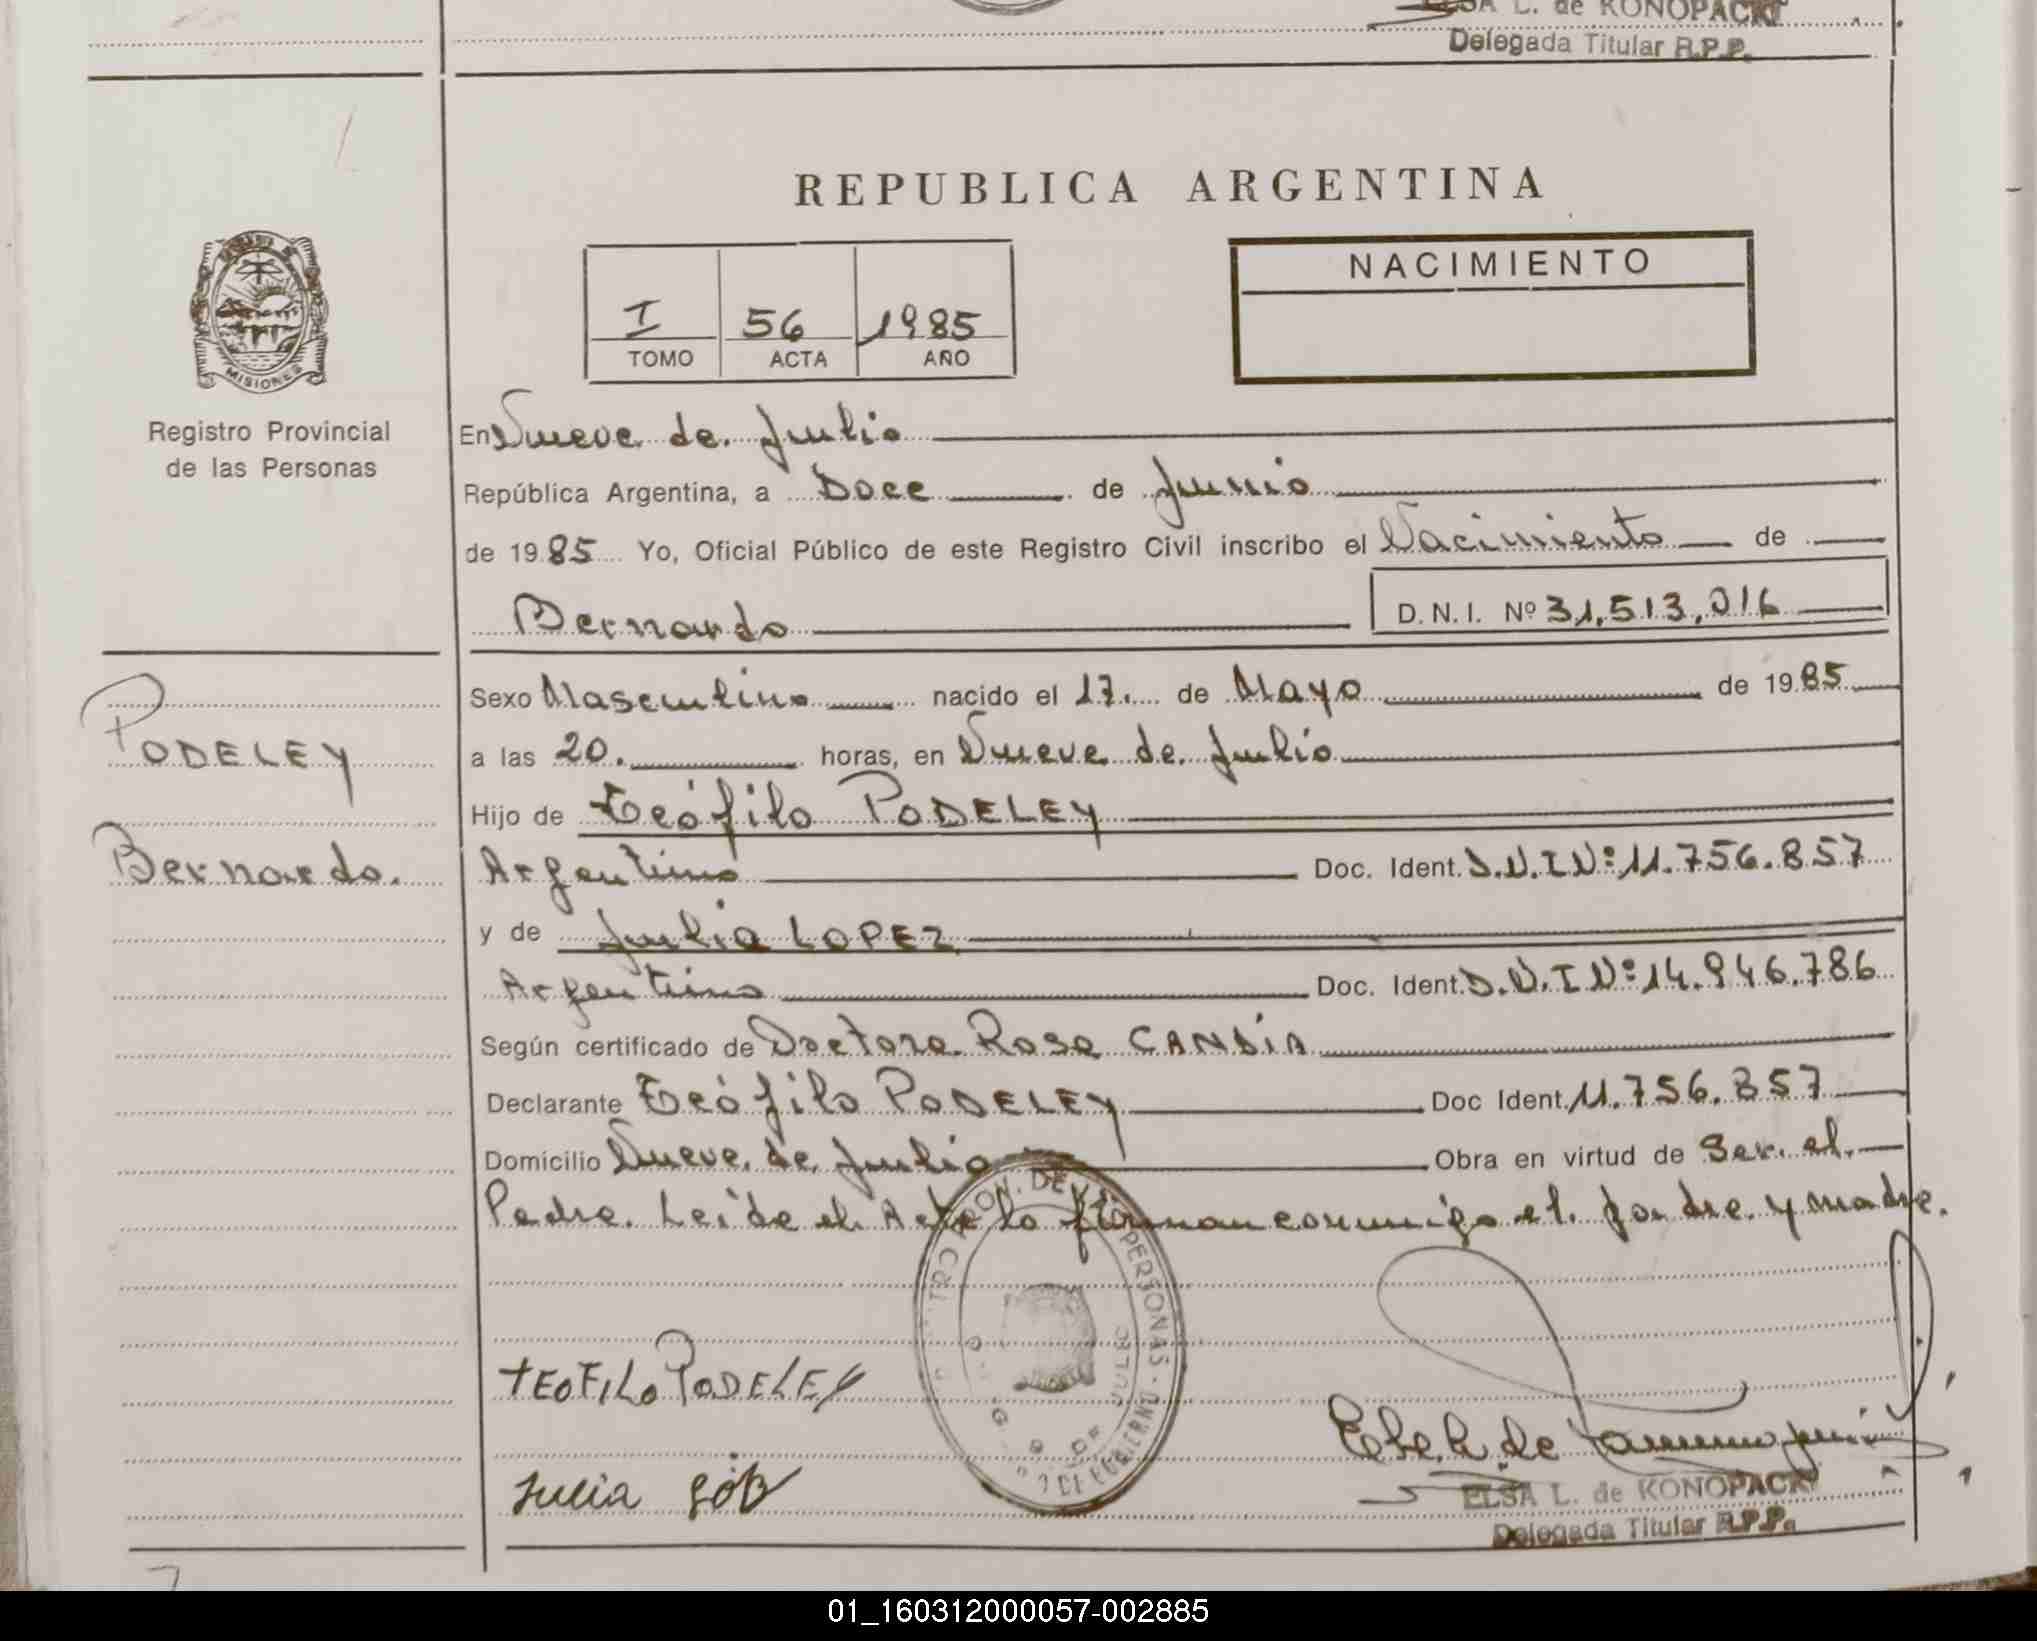 ELSA L. de KONOPACKI
Delegada Titular R.P.P.
REPUBLICA ARGENTINA
NACIMIENTO
I 56 1985
TOMO ACTA AÑO
MISIONES
Registro Provincial
de las Personas
En Nueve de Julio
República Argentina, a Doce de Junio
de 1985 Yo, Oficial Público de este Registro Civil inscribo el Nacimiento de
Bernardo D.N.I. Nº 31,513,016
PODELEY
Bernardo.
Sexo Masculino nacido el 17. de Mayo de 1985
a las 20. horas, en Nueve de Julio
Hijo de Teófilo PODELEY
Argentino Doc. Ident. D.N.I Nº: 11.756.857
y de Julia LOPEZ
Argentina Doc. Ident. D.N.I Nº: 14.946.786
Según certificado de Doctora Rosa CANDÍA
Declarante Teófilo PODELEY Doc Ident. 11.756.857
Domicilio Nueve de Julio Obra en virtud de Ser el
Padre. Leída el Acta lo firman conmigo el padre y madre.
TEOFILO PODELEY
Julia
ELSA L. de KONOPACKI
Delegada Titular R.P.P.
01_160312000057-002885